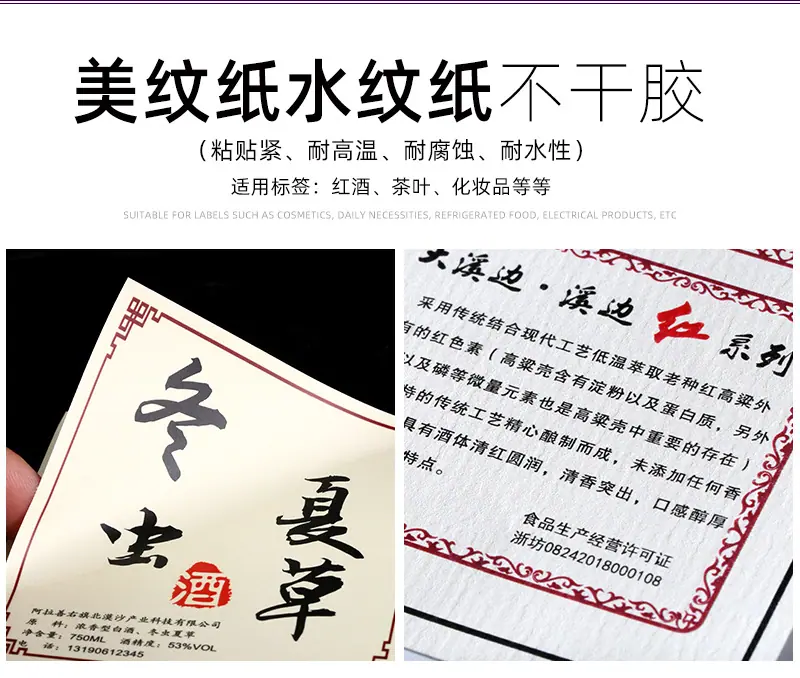 美纹纸水纹纸不干胶
（粘贴紧、耐高温、耐腐蚀、耐水性）
适用标签：红酒、茶叶、化妆品等等
SUITABLE FOR LABELS SUCH AS COSMETICS, DAILY NECESSITIES, REFRIGERATED FOOD, ELECTRICAL PRODUCTS, ETC
冬
虫
夏
草
酒
阿拉善右旗北漠沙产业科技有限公司
原 料：浓香型白酒、冬虫夏草
净含量：750ML 酒精度：53%VOL
电 话：13190612345
天溪边·溪边红系列
采用传统结合现代工艺低温萃取老种红高粱外
有的红色素（高粱壳含有淀粉以及蛋白质，另外
以及磷等微量元素也是高粱壳中重要的存在）
特的传统工艺精心酿制而成，未添加任何香
具有酒体清红圆润，清香突出，口感醇厚
特点。
食品生产经营许可证
浙坊08242018000108